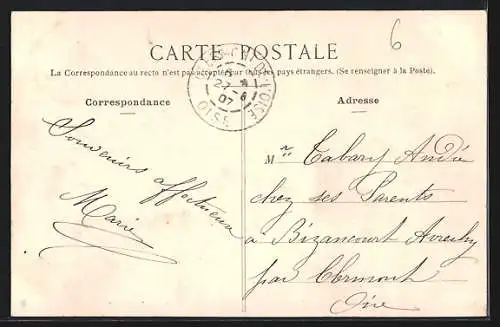 6
CARTE POSTALE
La Correspondance au recto n'est pas acceptée par tous les pays étrangers. (Se renseigner à la Poste).
Correspondance
Adresse
Souvenirs affectueux
Marie
27 -6
07
OISE
Mr Tabary André
chez ses Parents
à Bizancourt
par Clermont
Oise